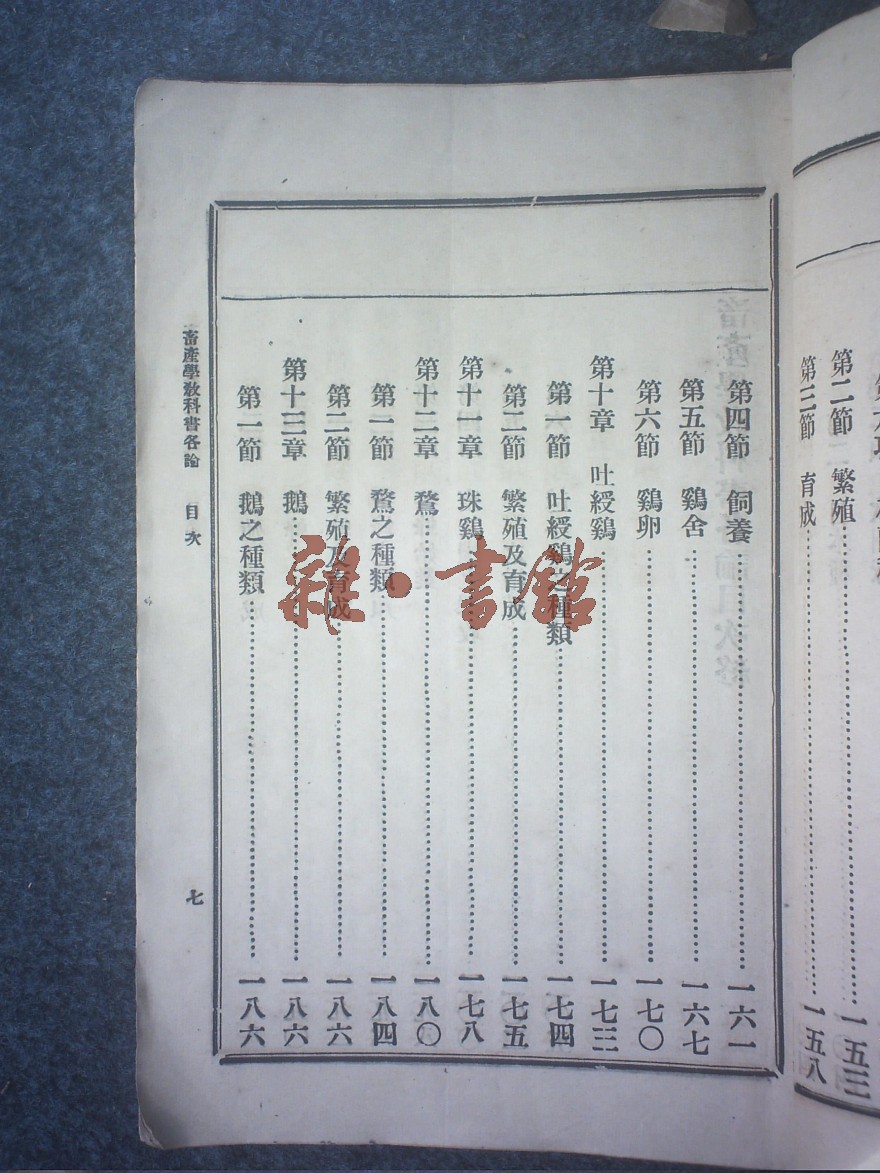 第二節　繁殖……一五三
第三節　育成……一五八
第四節　飼養……一六一
第五節　鷄舍……一六七
第六節　鷄卵……一七〇
第十章　吐綬鷄……一七三
第一節　吐綬鷄之種類……一七四
第二節　繁殖及育成……一七五
第十一章　珠鷄……一七八
第十二章　鶩……一八〇
第一節　鶩之種類……一八四
第二節　繁殖及育成……一八六
第十三章　鵝……一八六
第一節　鵝之種類……一八六
畜產學教科書各論　目次　七
雜·書館